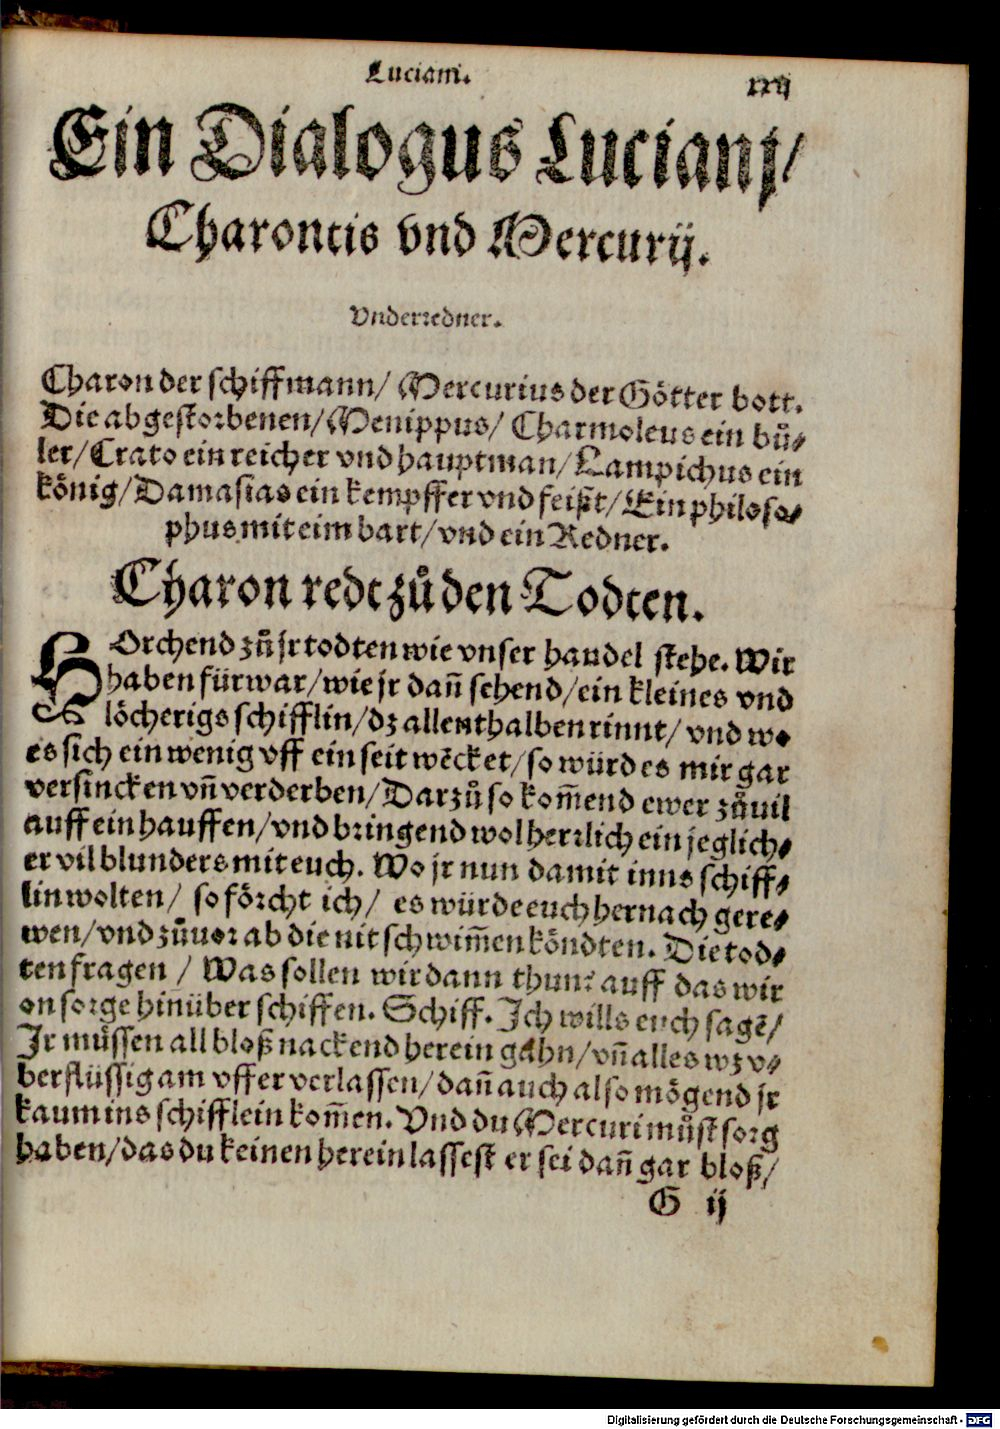 Luciani.
xxij
Ein Dialogus Lucianj/
Charontis vnd Mercurij.
Vnderredner.
Charon der schiffmann/ Mercurius der Götter bott.
Die abgestorbenen/ Menippus/ Charmoleus ein bů-
ler/ Crato ein reicher vnd hauptman/ Lampichus ein
könig/ Damasias ein kempffer vnd feißt/ Ein philoso-
phus mit eim bart/ vnd ein Redner.
Charon redt zů den Todten.
HOrchend zů jr todten wie vnser handel stehe. Wir
haben fürwar/ wie jr dañ sehend/ ein kleines vnd
löcherigs schifflin/ dz allenthalben rinnt/ vnd wo
es sich ein wenig vff ein seit wẽcket/ so würd es mir gar
versincken vñ verderben/ Darzů so kom̃end ewer zůuil
auff ein hauffen/ vnd bringend wol herrlich ein jeglich-
er vil blunders mit euch. Wo jr nun damit inns schiff-
lin wolten/ so förcht ich/ es würde euch hernach gere-
wen/ vnd zůuor ab die nit schwim̃en köndten. Die tod-
ten fragen/ Was sollen wir dann thun? auff das wir
on sorge hinüber schiffen. Schiff. Ich wills euch sagẽ/
Ir můssen all bloß nackend herein gahn/ vñ alles wz v-
berflüssig am vffer verlassen/ dañ auch also mögend jr
kaum ins schifflein kom̃en. Vnd du Mercuri můst sorg
haben/ das du keinen herein lassest er sei dañ gar bloß/
G ij
Digitalisierung gefördert durch die Deutsche Forschungsgemeinschaft - DFG